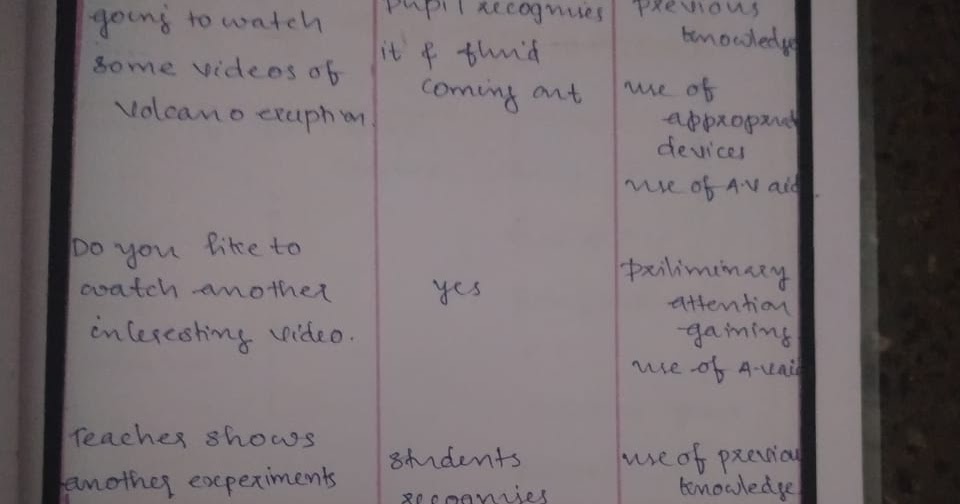 going to watch
some videos of
volcano eruption.
pupil recognises
it & fluid
coming out
previous
knowledge
use of
appropriat
devices
use of A-V aid.
Do you like to
watch another
interesting video.
yes
priliminary
attention
gaining
use of A-V aid
Teacher shows
another experiments
students
recognises
use of previou
knowledge